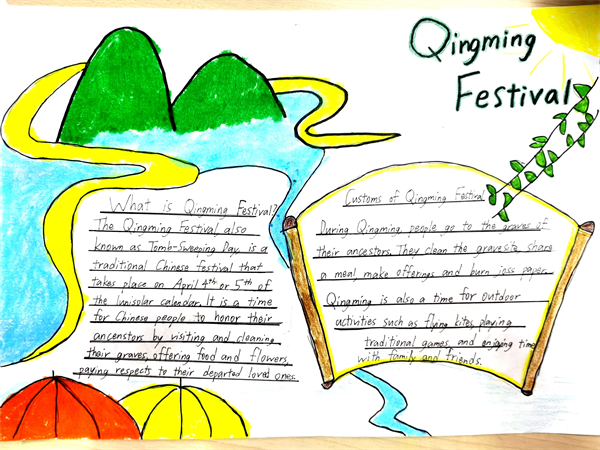 Qingming
Festival
What is Qingming Festival?
The Qingming Festival also
known as Tomb-Sweeping Day is a
traditional Chinese festival that
takes place on April 4th or 5th of
the lunisolar calendar. It is a time
for Chinese people to honor their
ancenstors by visiting and cleaning
their graves, offering food and flowers,
paying respects to their departed loved ones.
Customs of Qingming Festival
During Qingming, people go to the graves of
their ancestors. They clean the gravesite, share
a meal make offerings and burn joss paper.
Qingming is also a time for outdoor
activities such as flying kites, playing
traditional games, and enjoying time
with family and friends.